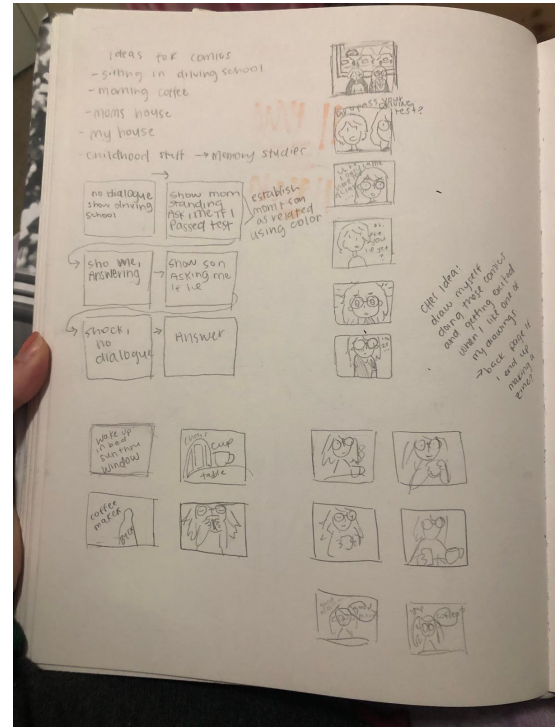 ideas for comics
- sitting in driving school
- morning coffee
- moms house
- my house
- childhood stuff → memory studies
no dialogue
show driving
school
show mom
standing
Ask me if I
passed test
establish
mom + son
as related
using color
sho me,
Answering
show son
Asking me
if ie
shock,
no
dialogue
Answer
pass your
driving
test?
other idea:
draw myself
doing these comics
and getting excited
when I like one of
my drawings
→ back page if
I end up
making a
zine?
wake up
in bed
sun thru
window
cup
table
coffee
maker